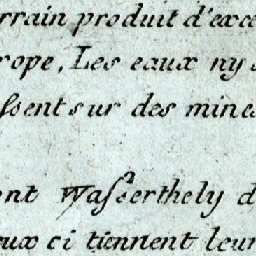 rrain produit d'exce
rope, Les eaux ny s
ssent sur des mines
ent Wasserthely d
eux ci tiennent leur